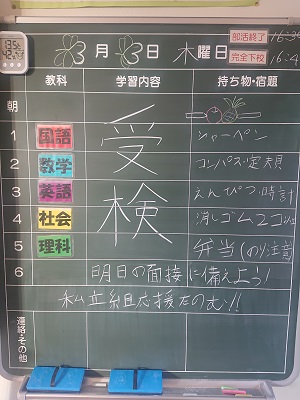 3月 3日 木曜日
部活終了 16:30
完全下校 16:4
教科 学習内容 持ち物・宿題
朝
受検
1 国語 シャーペン
2 数学 コンパス・定規
3 英語 えんぴつ・時計
4 社会 消しゴム2コ
5 理科 弁当(のり注意
6 明日の面接に備えよう!
私立組応援たのむ!!
連絡・その他